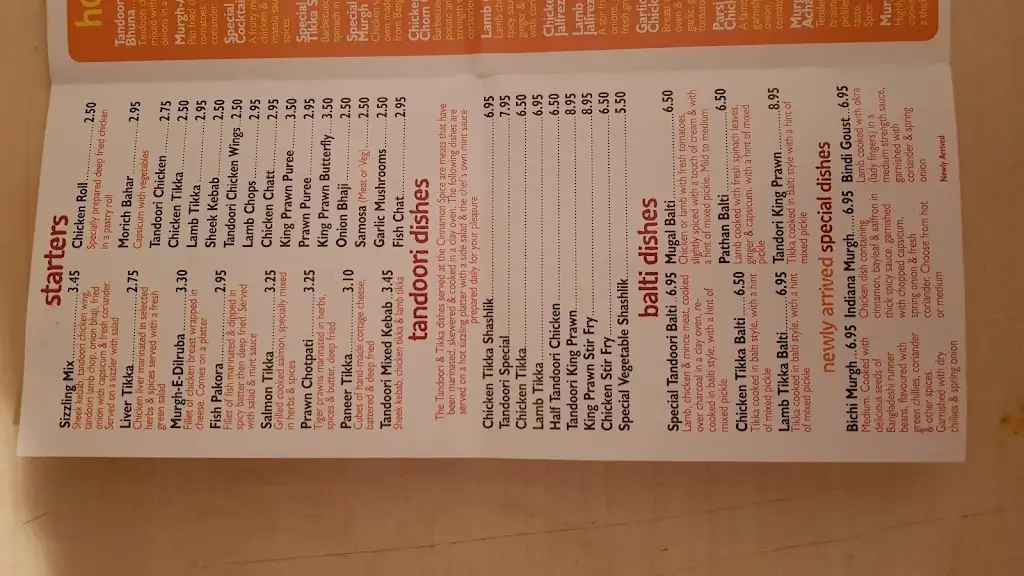 starters
Sizzling Mix 3.45
Sheek kebab, tandoori chicken wing,
tandoori lamb chop, onion bhaji, fried
onion with capsicum & fresh coriander
Served on a sizzler with salad
Liver Tikka 2.75
Chicken liver marinated in selected
herbs & spices served with a fresh
green salad
Murgh-E-Dilruba 3.30
Fillet of chicken breast wrapped in
cheese. Comes on a platter
Fish Pakora 2.95
Fillet of fish marinated & dipped in
spicy batter then deep fried. Served
with salad & mint sauce
Salmon Tikka 3.25
Grilled cooked salmon, specially mixed
in herbs & spices
Prawn Chotpati 3.25
Tiger prawns marinated in herbs,
spices & butter, deep fried
Paneer Tikka 3.10
Cubes of hand-made cottage cheese,
battered & deep fried
Tandoori Mixed Kebab 3.45
Sheek kebab, chicken tikka & lamb tikka
Chicken Roll 2.50
Specially prepared deep fried chicken
in a pastry roll
Morich Bahar 2.95
Capsicum with vegetables
Tandoori Chicken 2.75
Chicken Tikka 2.50
Lamb Tikka 2.95
Sheek Kebab 2.50
Tandoori Chicken Wings 2.50
Lamb Chops 2.95
Chicken Chatt 2.95
King Prawn Puree 3.50
Prawn Puree 2.95
King Prawn Butterfly 3.50
Onion Bhaji 2.50
Samosa (Meat or Veg) 2.50
Garlic Mushrooms 2.50
Fish Chat 2.95
tandoori dishes
The Tandoori & Tikka dishes served at the Cinnamon Spice are meats that have
been marinated, skewered & cooked in a clay oven. The following dishes are
served on a hot sizzling platter with a side salad & the chef's own mint sauce
prepared daily for your pleasure
Chicken Tikka Shashlik 6.95
Tandoori Special 7.95
Chicken Tikka 6.50
Lamb Tikka 6.95
Half Tandoori Chicken 6.50
Tandoori King Prawn 8.95
King Prawn Stir Fry 8.95
Chicken Stir Fry 6.50
Special Vegetable Shashlik 5.50
balti dishes
Special Tandoori Balti 6.95
Lamb, chicken & mince meat, cooked
over charcoal in a clay oven, re-
cooked in balti style, with a hint of
mixed pickle
Chicken Tikka Balti 6.50
Tikka cooked in balti style, with a hint
of mixed pickle
Lamb Tikka Balti 6.95
Tikka cooked in balti style, with a hint
of mixed pickle
Mugal Balti 6.50
Chicken or lamb with fresh tomatoes,
slightly spiced with a touch of cream & with
a hint of mixed pickle. Mild to medium
Pathan Balti 6.50
Lamb cooked with fresh spinach leaves,
ginger & capsicum, with a hint of mixed
pickle
Tandoori King Prawn 8.95
Tikka cooked in Balti style with a hint of
mixed pickle
newly arrived special dishes
Bichi Murgh 6.95
Medium. Cooked with
delicious seeds of
Bangladeshi runner
beans, flavoured with
green chillies, coriander
& other spices.
Garnished with dry
chillies & spring onion
Indiana Murgh 6.95
Chicken dish containing
cinnamon, bayleaf & saffron in
thick spicy sauce, garnished
with chopped capsicum,
spring onion & fresh
coriander. Choose from hot
or medium
Bindi Goust 6.95
Lamb cooked with okra
(lady fingers) in a
medium strength sauce,
garnished with
coriander & spring
onion
Newly Arrived